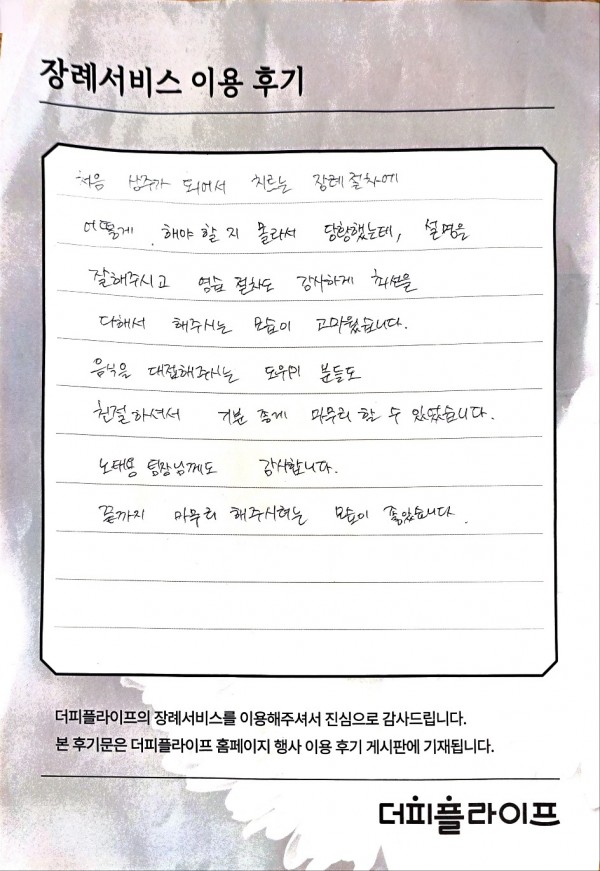 장례서비스 이용 후기
처음 상주가 되어서 치르는 장례절차에
어떻게 해야 할 지 몰라서 당황했는데, 설명을
잘해주시고 염습 절차도 감사하게 최선을
다해서 해주시는 모습이 고마웠습니다.
음식을 대접해주시는 도우미 분들도
친절하셔서 기분 좋게 마무리 할 수 있었습니다.
노태용 팀장님께도 감사합니다.
끝까지 마무리 해주시려는 모습이 좋았습니다.
더피플라이프의 장례서비스를 이용해주셔서 진심으로 감사드립니다.
본 후기문은 더피플라이프 홈페이지 행사 이용 후기 게시판에 기재됩니다.
더피플라이프